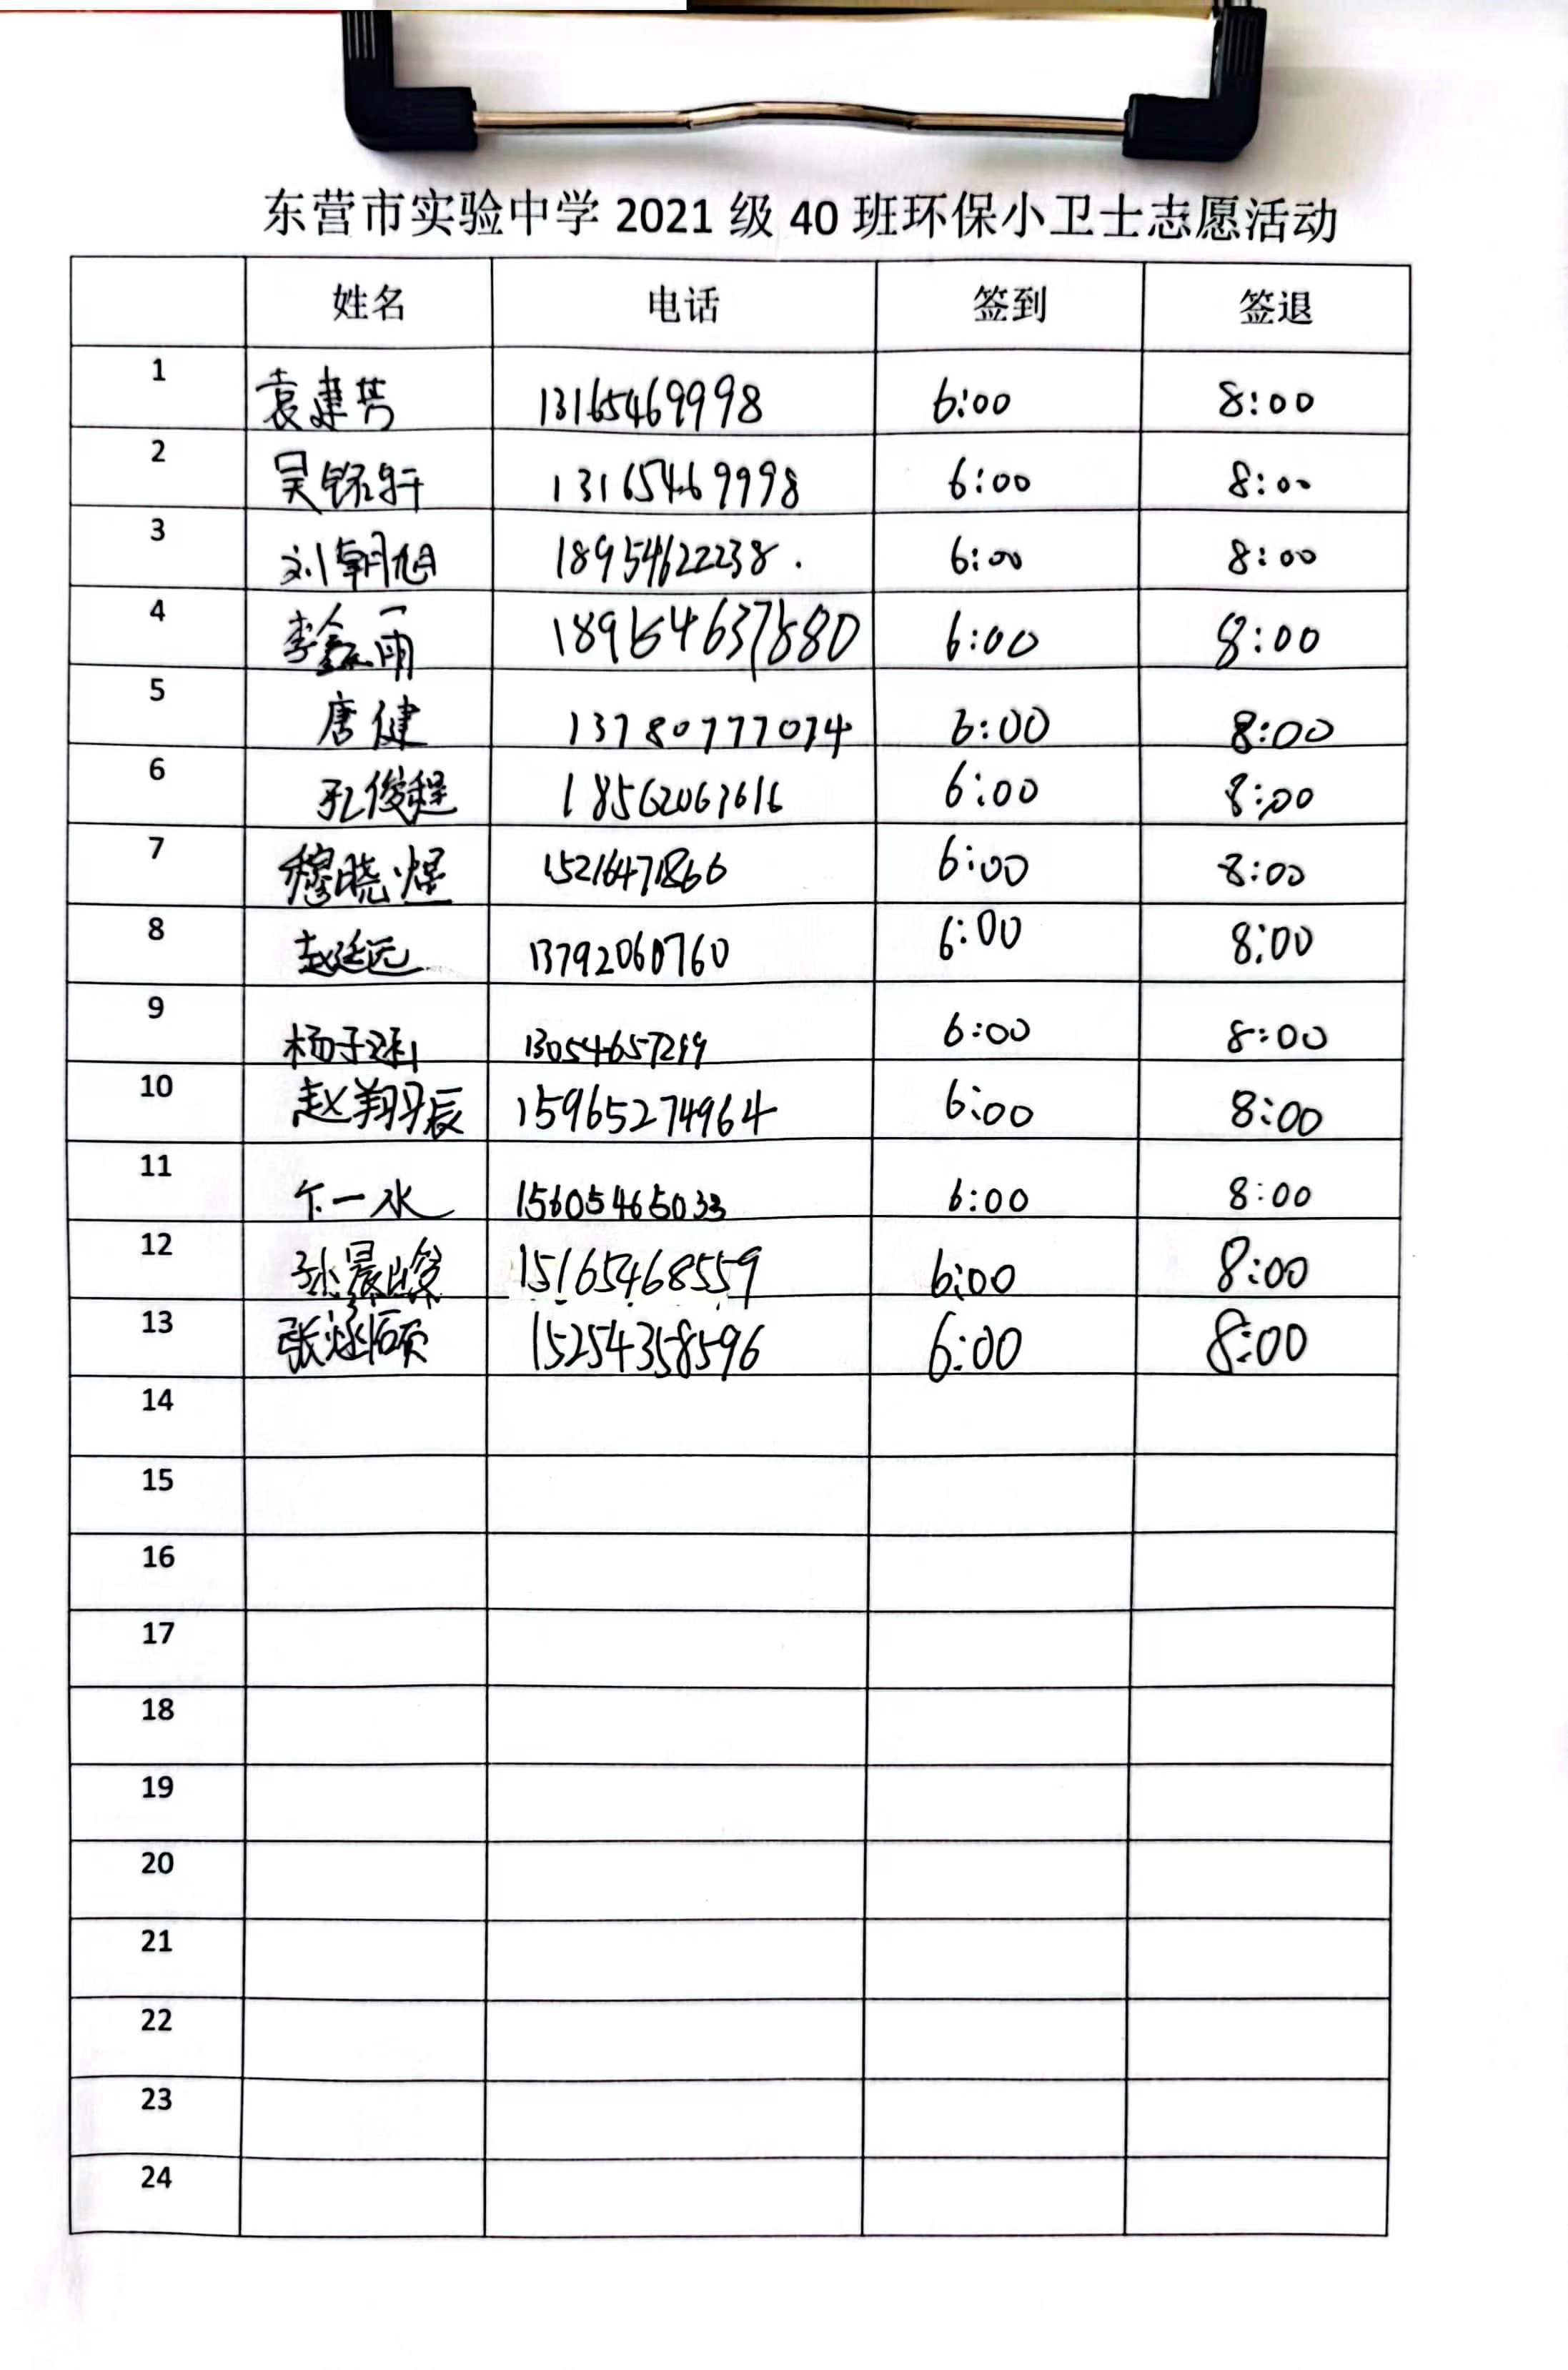 东营市实验中学 2021 级 40 班环保小卫士志愿活动
姓名 电话 签到 签退
1 袁建芳 13165469998 6:00 8:00
2 吴铭轩 13165469998 6:00 8:00
3 刘朝旭 18954622238. 6:00 8:00
4 李鑫雨 6:00 8:00
5 唐健 13780777074 6:00 8:00
6 孔俊程 18562063616 6:00 8:00
7 穆晓煜 15216471866 6:00 8:00
8 赵延远 13792060760 6:00 8:00
9 杨子 13054657299 6:00 8:00
10 赵翔辰 15965274964 6:00 8:00
11 卞一水 15605465033 6:00 8:00
12 孙晨峻 15165468559 6:00 8:00
13 张涵硕 15254358596 6:00 8:00
14
15
16
17
18
19
20
21
22
23
24